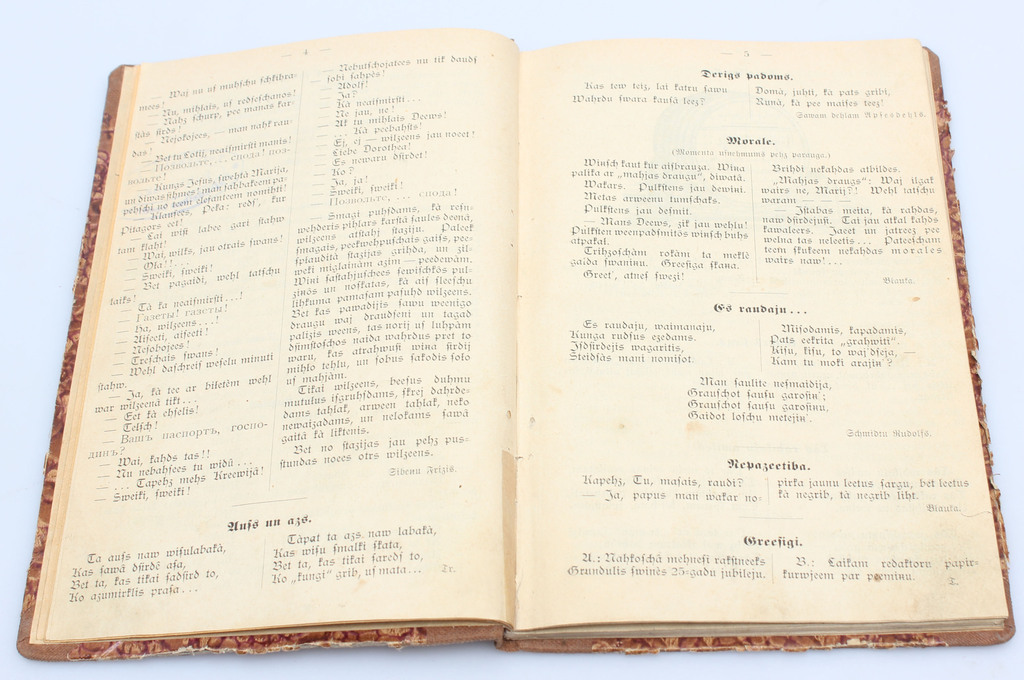 — 4 —
— Waj nu uſ muhſchu ſchkihra-
mees!
— Nu, mihlais, uſ redſeſchanos!
— Nahz ſchurp, pee manas kar-
ſtàs ſirds!
— Nejokojees, — man nahk rau-
das!
— Bet tu Lotij, neaiſmirſti manis!
— Позвольте,... спода! поз-
вольте!
— Kungs Jeſus, ſwehtà Marija,
un diwas ſihmes! man ſahbakeem pa-
pehſchi no teem eleſanteem nomihti!
— Klauſees, Peka: redſ', kur
Pitagors eet!
— Lai wiſi labee gari ſtahw
tam klaht!
— Wai, wilks, jau otrais ſwans!
— Ola!...
— Sweiki, ſweiki!
— Bet pagaidi, wehl tatſchu
laiks!
— Tà ka neaiſmirſti...!
— Газеты! газеты!
— Ha, wilzeens...!
— Aiſeeti, aiſeeti!
— Neſobojees!
— Treſchais ſwans!
— Wehl daſchreiſ weſelu minuti
ſtahw.
— Ja, kà tee ar biletèm wehl
war wilzeenà tikt...
— Eet kà ehſelis!
— Telſch!
— Вашъ паспортъ, госпо-
динъ?
— Wai, kahds tas!!
— Nu nebahſees tu widû...
— ... Tapehz mehs Kreewijà!
— Sweiki, ſweiki!
— Nebutſchojatees nu tik daudſ
ſobi ſahpès!
— Adolf!
— Ja?
— Kà neaiſmirſti...
— Ne jau, ne!
— Ak tu mihlais Deews!
— ... Kà peebahſts!
— Ej, ej — wilzeens jau noeet!
— Liebe Dorothea!
— Es newaru dſirdet!
— Ko?
— Ja, ja!
— Sweiki, ſweiki!
— Позвольте, ... спода!
— Smagi puhſdams, kà reſn-
wehderis pihlars karſtà ſaules deenà,
wilzeens atſtahj ſtaziju. Paleek
ſmagais, peekwehpuſchais gaiſs, pee-
ſplauditâ ſtazijas grihda, un zil-
weki miglainàm azim — peedewàm.
Wini ſaſtahjuſchees ſewiſchkôs pul-
ziņôs un noſkatas, kà aiſ ſleeſchu
lihkuma pamaſam paſuhd wilzeens.
Bet kas pawadijis ſawu weenigo
draugu waj draudſeni un tagad
palizis weens, tas norij uſ luhpàm
dſimſtoſchos naida wahrdus pret to
waru, kas atrahwuſi wina ſirdij
mihļo tehlu, un ſobus ſakodis ſoļo
uſ mahjàm.
Tikai wilzeens, beeſus duhmu
mutuļus iſgruhſdams, ſkrej dahrde-
dams tahlak, arween tahlak, neko
newaizadams, un nelokams ſawà
gaità kà liktenis.
Bet no ſtazijas jau pehz puſ-
ſtundas noees otrs wilzeens.
Sibeņu Frizis.
Auſs un azs.
Ta auſs naw wiſulabakà,
Kas ſawà dſirdê aſa,
Bet ta, kas tikai ſadſird to,
Ko azumirklis praſa...
Tàpat ta azs naw labakà,
Kas wiſu ſmalki ſkata,
Bet ta, kas tikai ſaredſ to,
Ko „kungi“ grib, uſ mata... Tr.
— 5 —
Derigs padoms.
Kas tew teiz, lai katru ſawu
Wahrdu ſwara kauſà leez?
Domà, juhti, kà pats gribi,
Runà, kà pee maiſes teez!
Sawam dehlam Apirsdehls.
Morale.
(Momenta uſņehmums pehz parauga.)
Winſch kaut kur aiſbrauza. Wiņa
palika ar „mahjas draugu“, diwatâ.
Wakars. Pulkſtens jau dewiņi.
Metas arweenu tumſchaks.
Pulkſtens jau deſmit.
— Mans Deews, zik jau wehlu!
Pulkſten weenpadſmitôs winſch buhs
atpakaļ.
Trihzoſchàm rokàm ta meklê
gaiſda ſwaniņu. Greeſiga ſkaņa.
Greet', atneſ ſwezi!
Brihdi nekahdas atbildes.
„Mahjas draugs“: Waj ilgak
wairs ne, Marij?! Wehl tatſchu
waram — — —
— Iſtabas meita, kà rahdas,
naw dſirdejuſi. Tai jau atkal kahds
kawaleers. Jaeet un jatreez pee
welna tas neleetis... Pateeſcham
teem ſkuķeem nekahdas morales
wairs naw!...
Blauka.
Es raudaju...
Es raudaju, waimanaju,
Kunga rudſus ezedams.
Iſdſirdejis wagaritis,
Steidſàs mani nomiſot.
Miſodamis, kapadamis,
Pats eekrita „grahwitî“.
Kiſu, kiſu, to waj'dſeja, —
Kam tu moki arajiņ'?
Man ſaulite neſmaidija,
Grauſchot ſauſu garoſiņ';
Grauſchot ſauſu garoſiņu,
Gaidot loſchu metejiņ'.
Schmidtu Rudolfs.
Nepazeetiba.
Kapehz, Tu, maſais, raudi?
— Ja, papus man wakar no-
pirka jaunu leetus ſargu, bet leetus
kà negrib, tà negrib liht.
Blauka.
Greeſigi.
A.: Nahkoſchà mehneſî rakſtneeks
Grundulis ſwinês 25-gadu jubileju.
B.: Laikam redaktoru papir-
kurwjeem par peemiņu.
T.